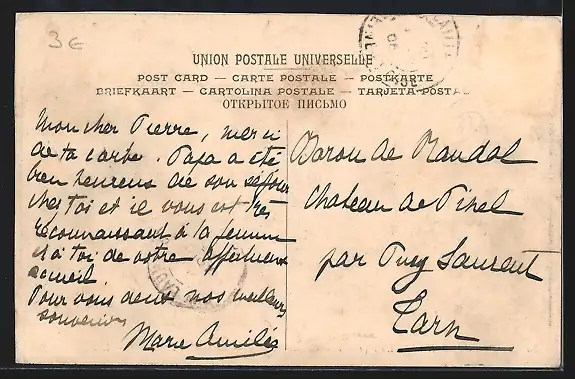 3€
UNION POSTALE UNIVERSELLE
POST CARD — CARTE POSTALE — POSTKARTE
BRIEFKAART — CARTOLINA POSTALE — TARJETA POSTAL
ОТКРЫТОЕ ПИСЬМО
Mon cher Pierre, merci
de ta carte. Papa a été
bien heureux de son séjour
chez toi et il vous est très
reconnaissant à ta femme
et à toi de votre affectueux
accueil
Pour vous deux nos meilleurs
souvenirs
Marie Amélie
Baron de
Chateau de
par Puy Laurent
Tarn